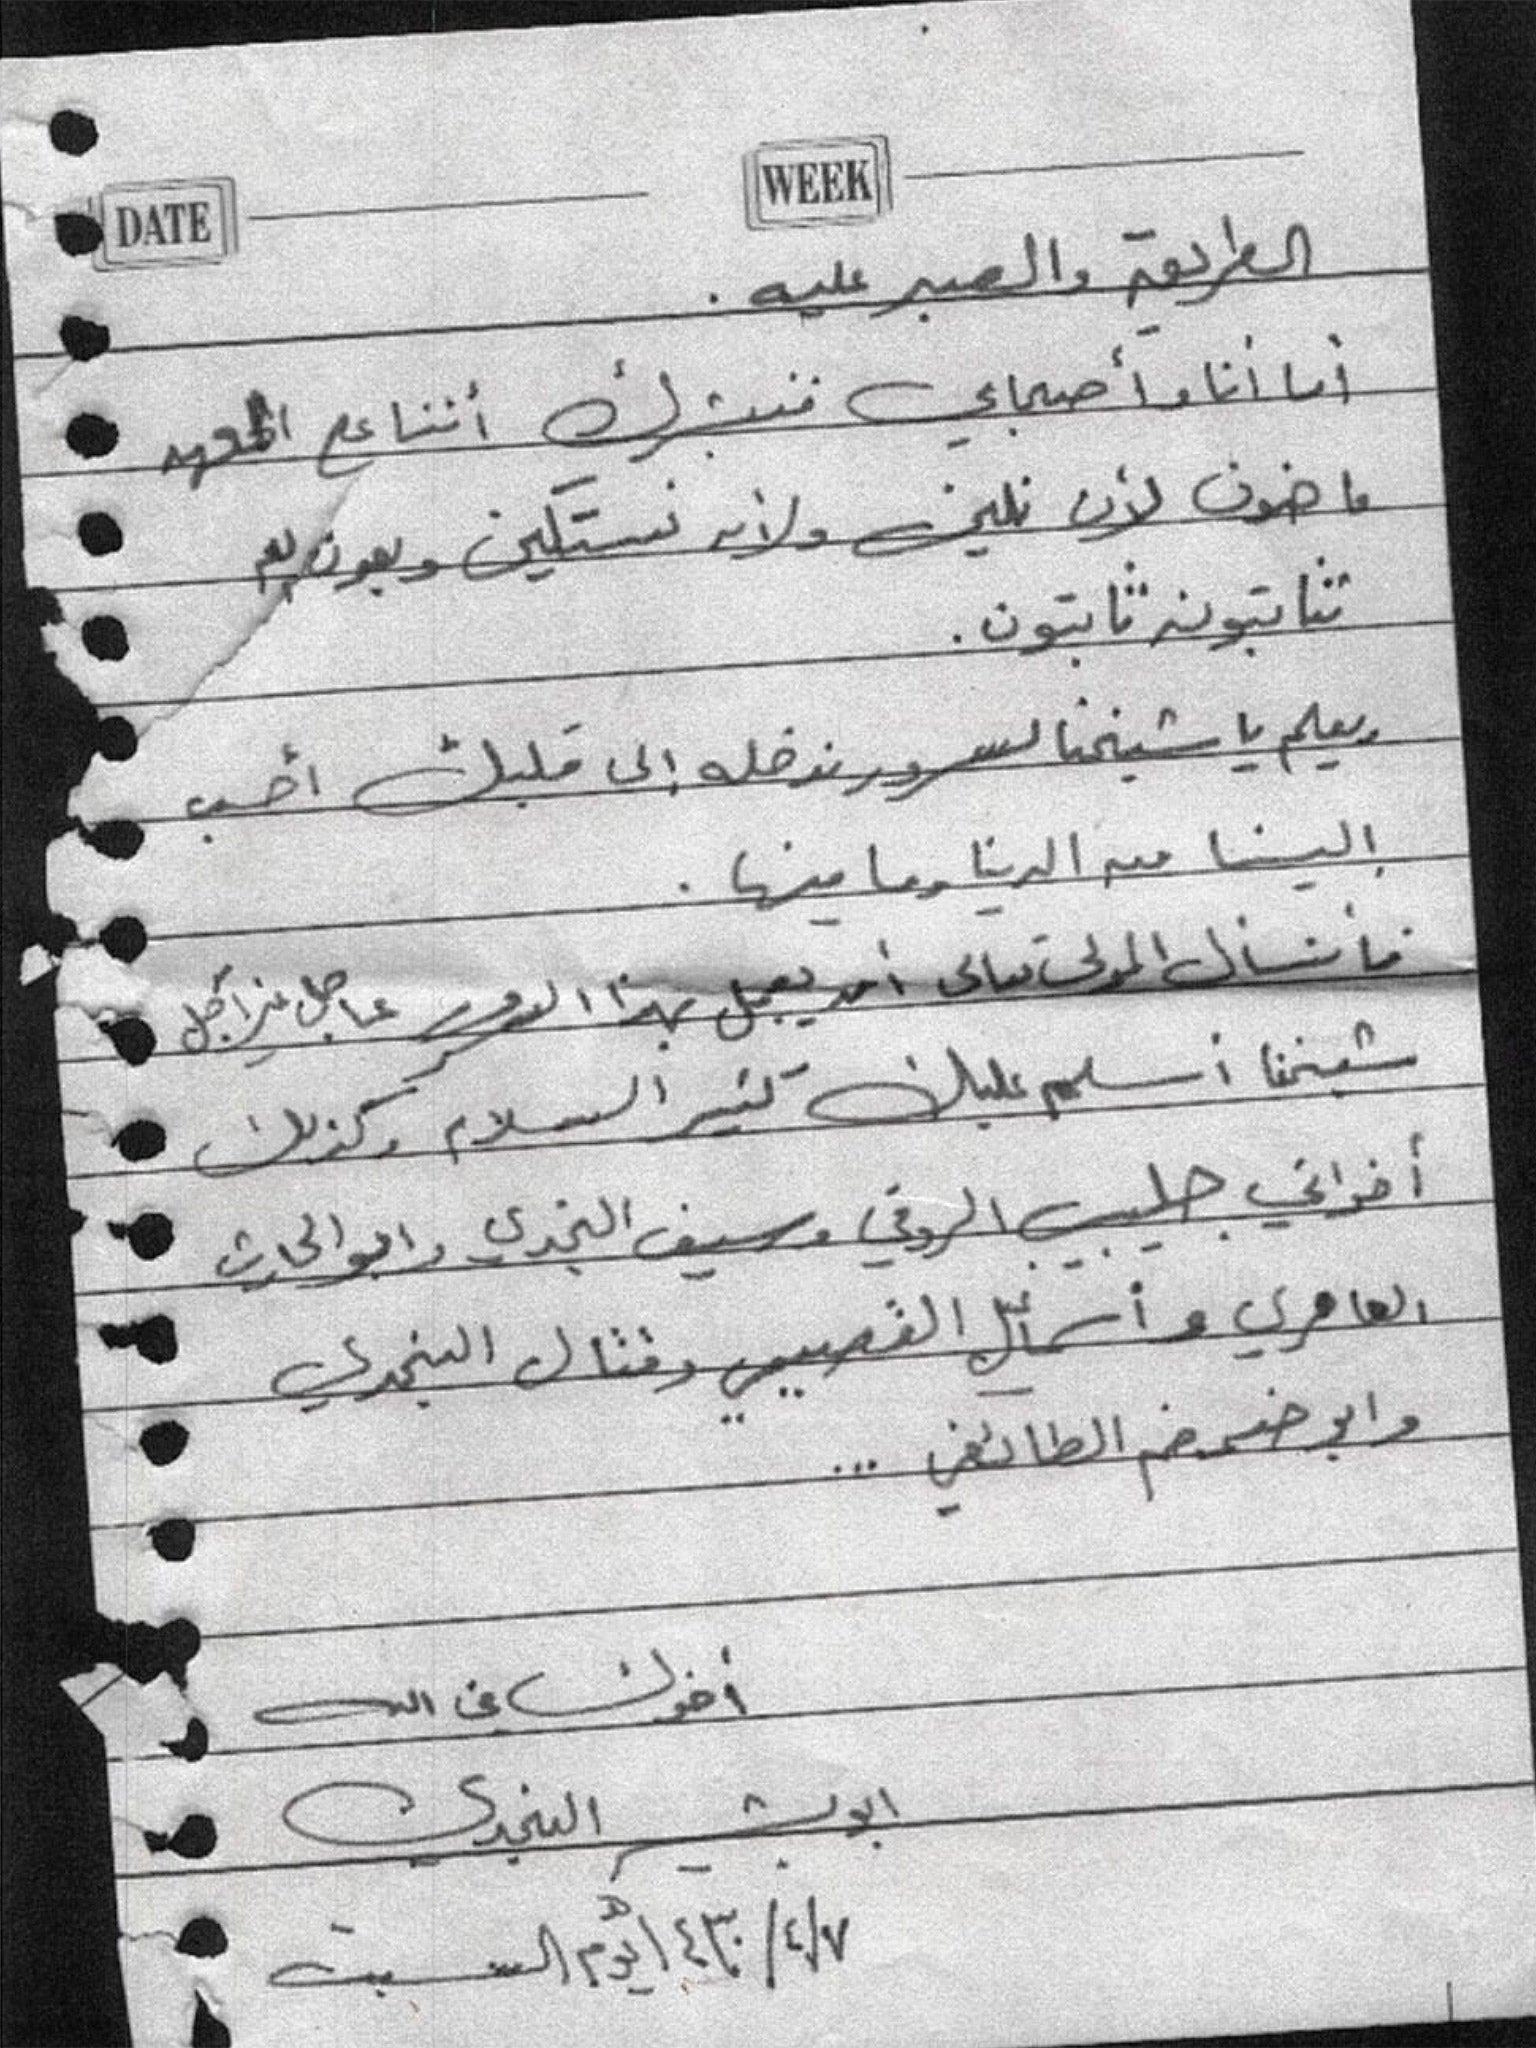 DATE WEEK
الطريقة والصبر عليه .
أما أنا وأصحابي فنبشرك أننا على العهد
ماضون لأن نلين ولان نستكين وبعون
ثابتون ثابتون .
ويعلم يا شيخنا لسرور ندخله إلى قلبك أحب
إلينا من الدنيا وما فيها .
فأنسأل المولى تعالى أن يعجل بهذا عاجل غير آجل
شيخنا أسلم عليك كثير السلام وكذلك
أخواني جليبيب الروقي وسيف النجدي وابو الحارث
العامري و القصيمي وقتال النجدي
وابو الطائفي ...
أخوك في الله
ابو بشير النجدي
٧/٤/١٤٣٠هـ يوم السبت